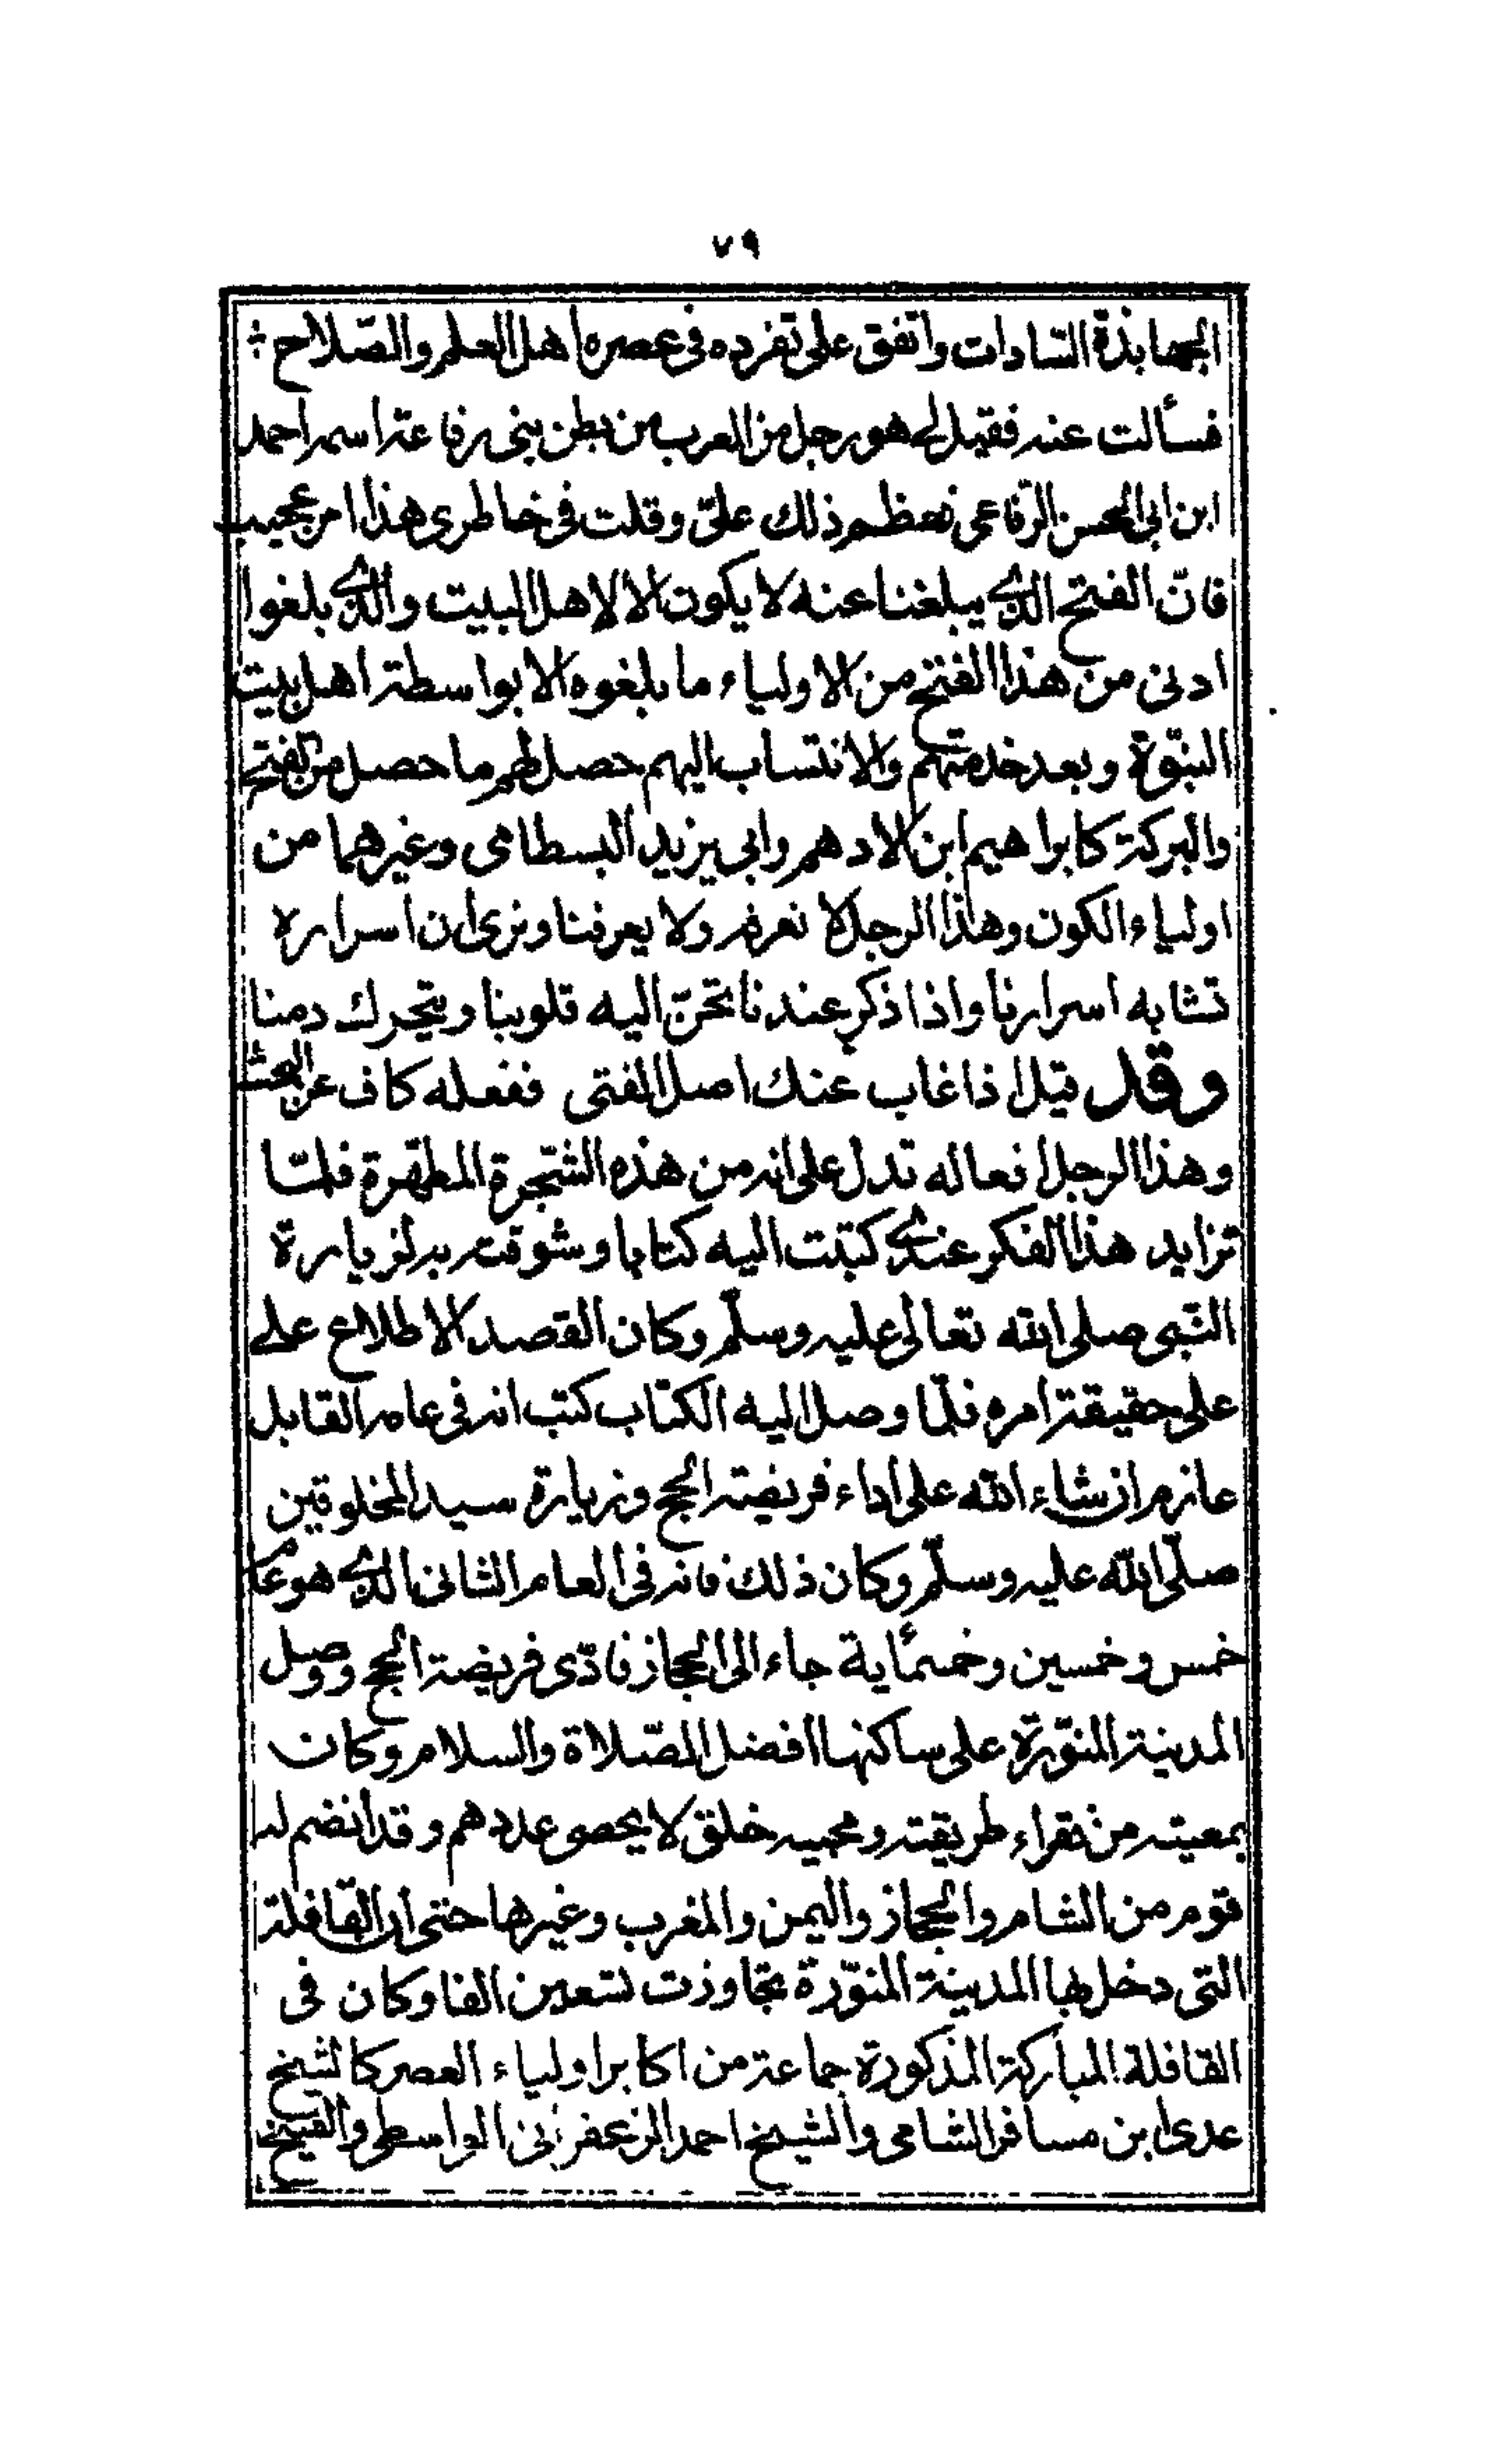 ٧٩
الجهابذة السّادات واتفق على تفرده فى عصره اهل العلم والصّلاح ؞
فسألت عنه فقيل لى هو رجل من العرب من بطن بنى رفاعة اسمه احمد
ابن ابى الحسن الرّفاعى فعظم ذلك علىّ وقلت فى خاطرى هذا امر عجيب
فانّ الفتح الذى يبلغنا عنه لا يكون الا لاهل البيت والذى بلغوا
ادنى من هذا الفتح من الاولياء ما بلغوه الا بواسطة اهل بيت
النبوّة وبعد خدمتهم والانتساب اليهم حصل لهم ما حصل من الفتح
والبركة كابراهيم ابن الادهم وابى يزيد البسطامى وغيرهما من
اولياء الكون وهذا الرجل لا نعرفه ولا يعرفنا ونرى ان اسراره
تشابه اسرارنا واذا ذكر عندنا تحنّ اليه قلوبنا ويتحرك دمنا
وقد قيل اذا غاب عنك اصل الفتى ففعله كاف عن البحث
وهذا الرجل افعاله تدل على انه من هذه الشّجرة المطهّرة فلمّا
تزايد هذا الفكر عندى كتبت اليه كتابا وشوقته به لزيارة
النّبى صلى الله تعالى عليه وسلّم وكان القصد الاطلاع على
على حقيقة امره فلمّا وصل اليه الكتاب كتب انه فى عام القابل
عازم ان شاء الله على اداء فريضة الحج وزيارة سيد المخلوقين
صلّى الله عليه وسلّم وكان ذلك فانه فى العام الثانى الذى هو عام
خمس وخمسين وخمسمأية جاء الى الحجاز فادّى فريضة الحج ووصل
المدينة المنوّرة على ساكنها افضل الصّلاة والسلام وكان
بمعيته من فقراء طريقته ومحبيه خلق لا يحصو عددهم وقد انضم له
قوم من الشام والحجاز واليمن والمغرب وغيرها حتى ان القافلة
التى دخل بها المدينة المنوّرة تجاوزت تسعين الفا وكان فى
القافلة المباركة المذكورة جماعة من اكابر اولياء العصر كالشيخ
عدى ابن مسافر الشامى والشيخ احمد الزعفرانى الواسطى والشيخ